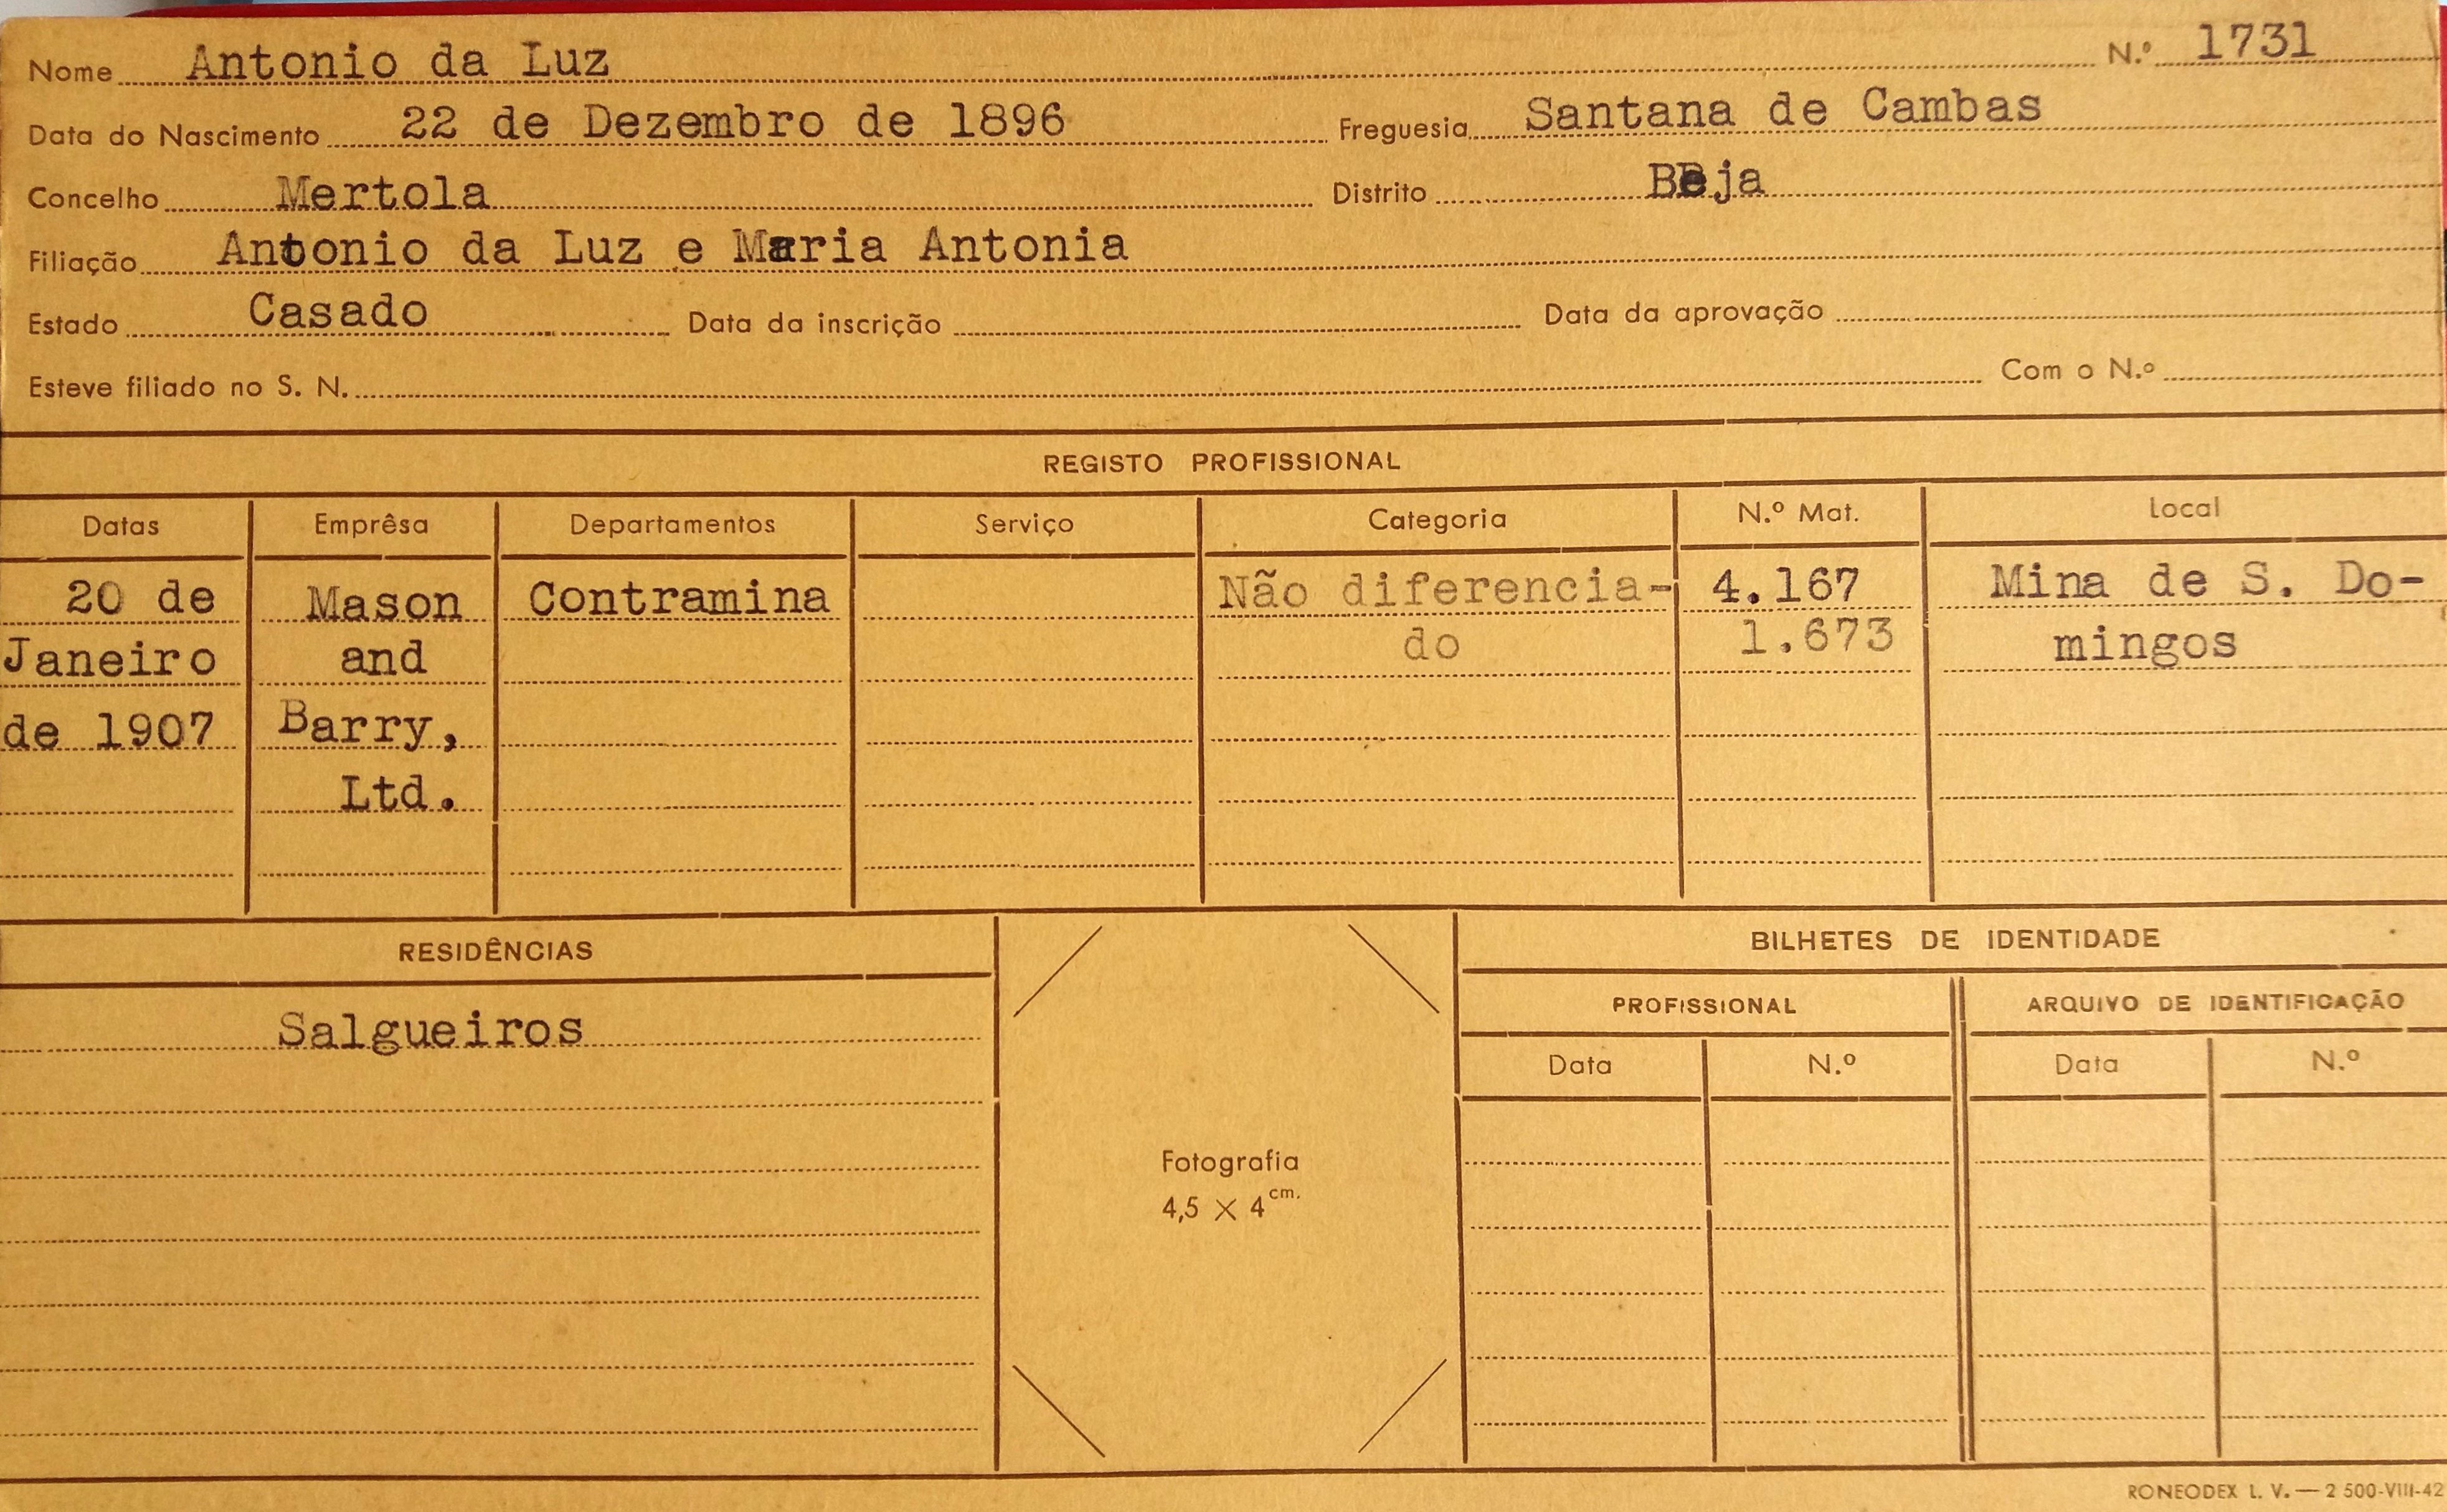 Nome Antonio da Luz N.º 1731
Data do Nascimento 22 de Dezembro de 1896 Freguesia Santana de Cambas
Concelho Mertola Distrito Beja
Filiação Antonio da Luz e Maria Antonia
Estado Casado Data da inscrição Data da aprovação
Esteve filiado no S. N. Com o N.º
REGISTO PROFISSIONAL
Datas Emprêsa Departamentos Serviço Categoria N.º Mat. Local
20 de Mason Contramina Não diferencia- 4.167 Mina de S. Do-
Janeiro and do 1.673 mingos
de 1907 Barry,
Ltd.
RESIDÊNCIAS BILHETES DE IDENTIDADE
PROFISSIONAL ARQUIVO DE IDENTIFICAÇÃO
Salgueiros
Data N.º Data N.º
Fotografia
4,5 × 4 cm.
RONEODEX L. V. — 2 500-VIII-42